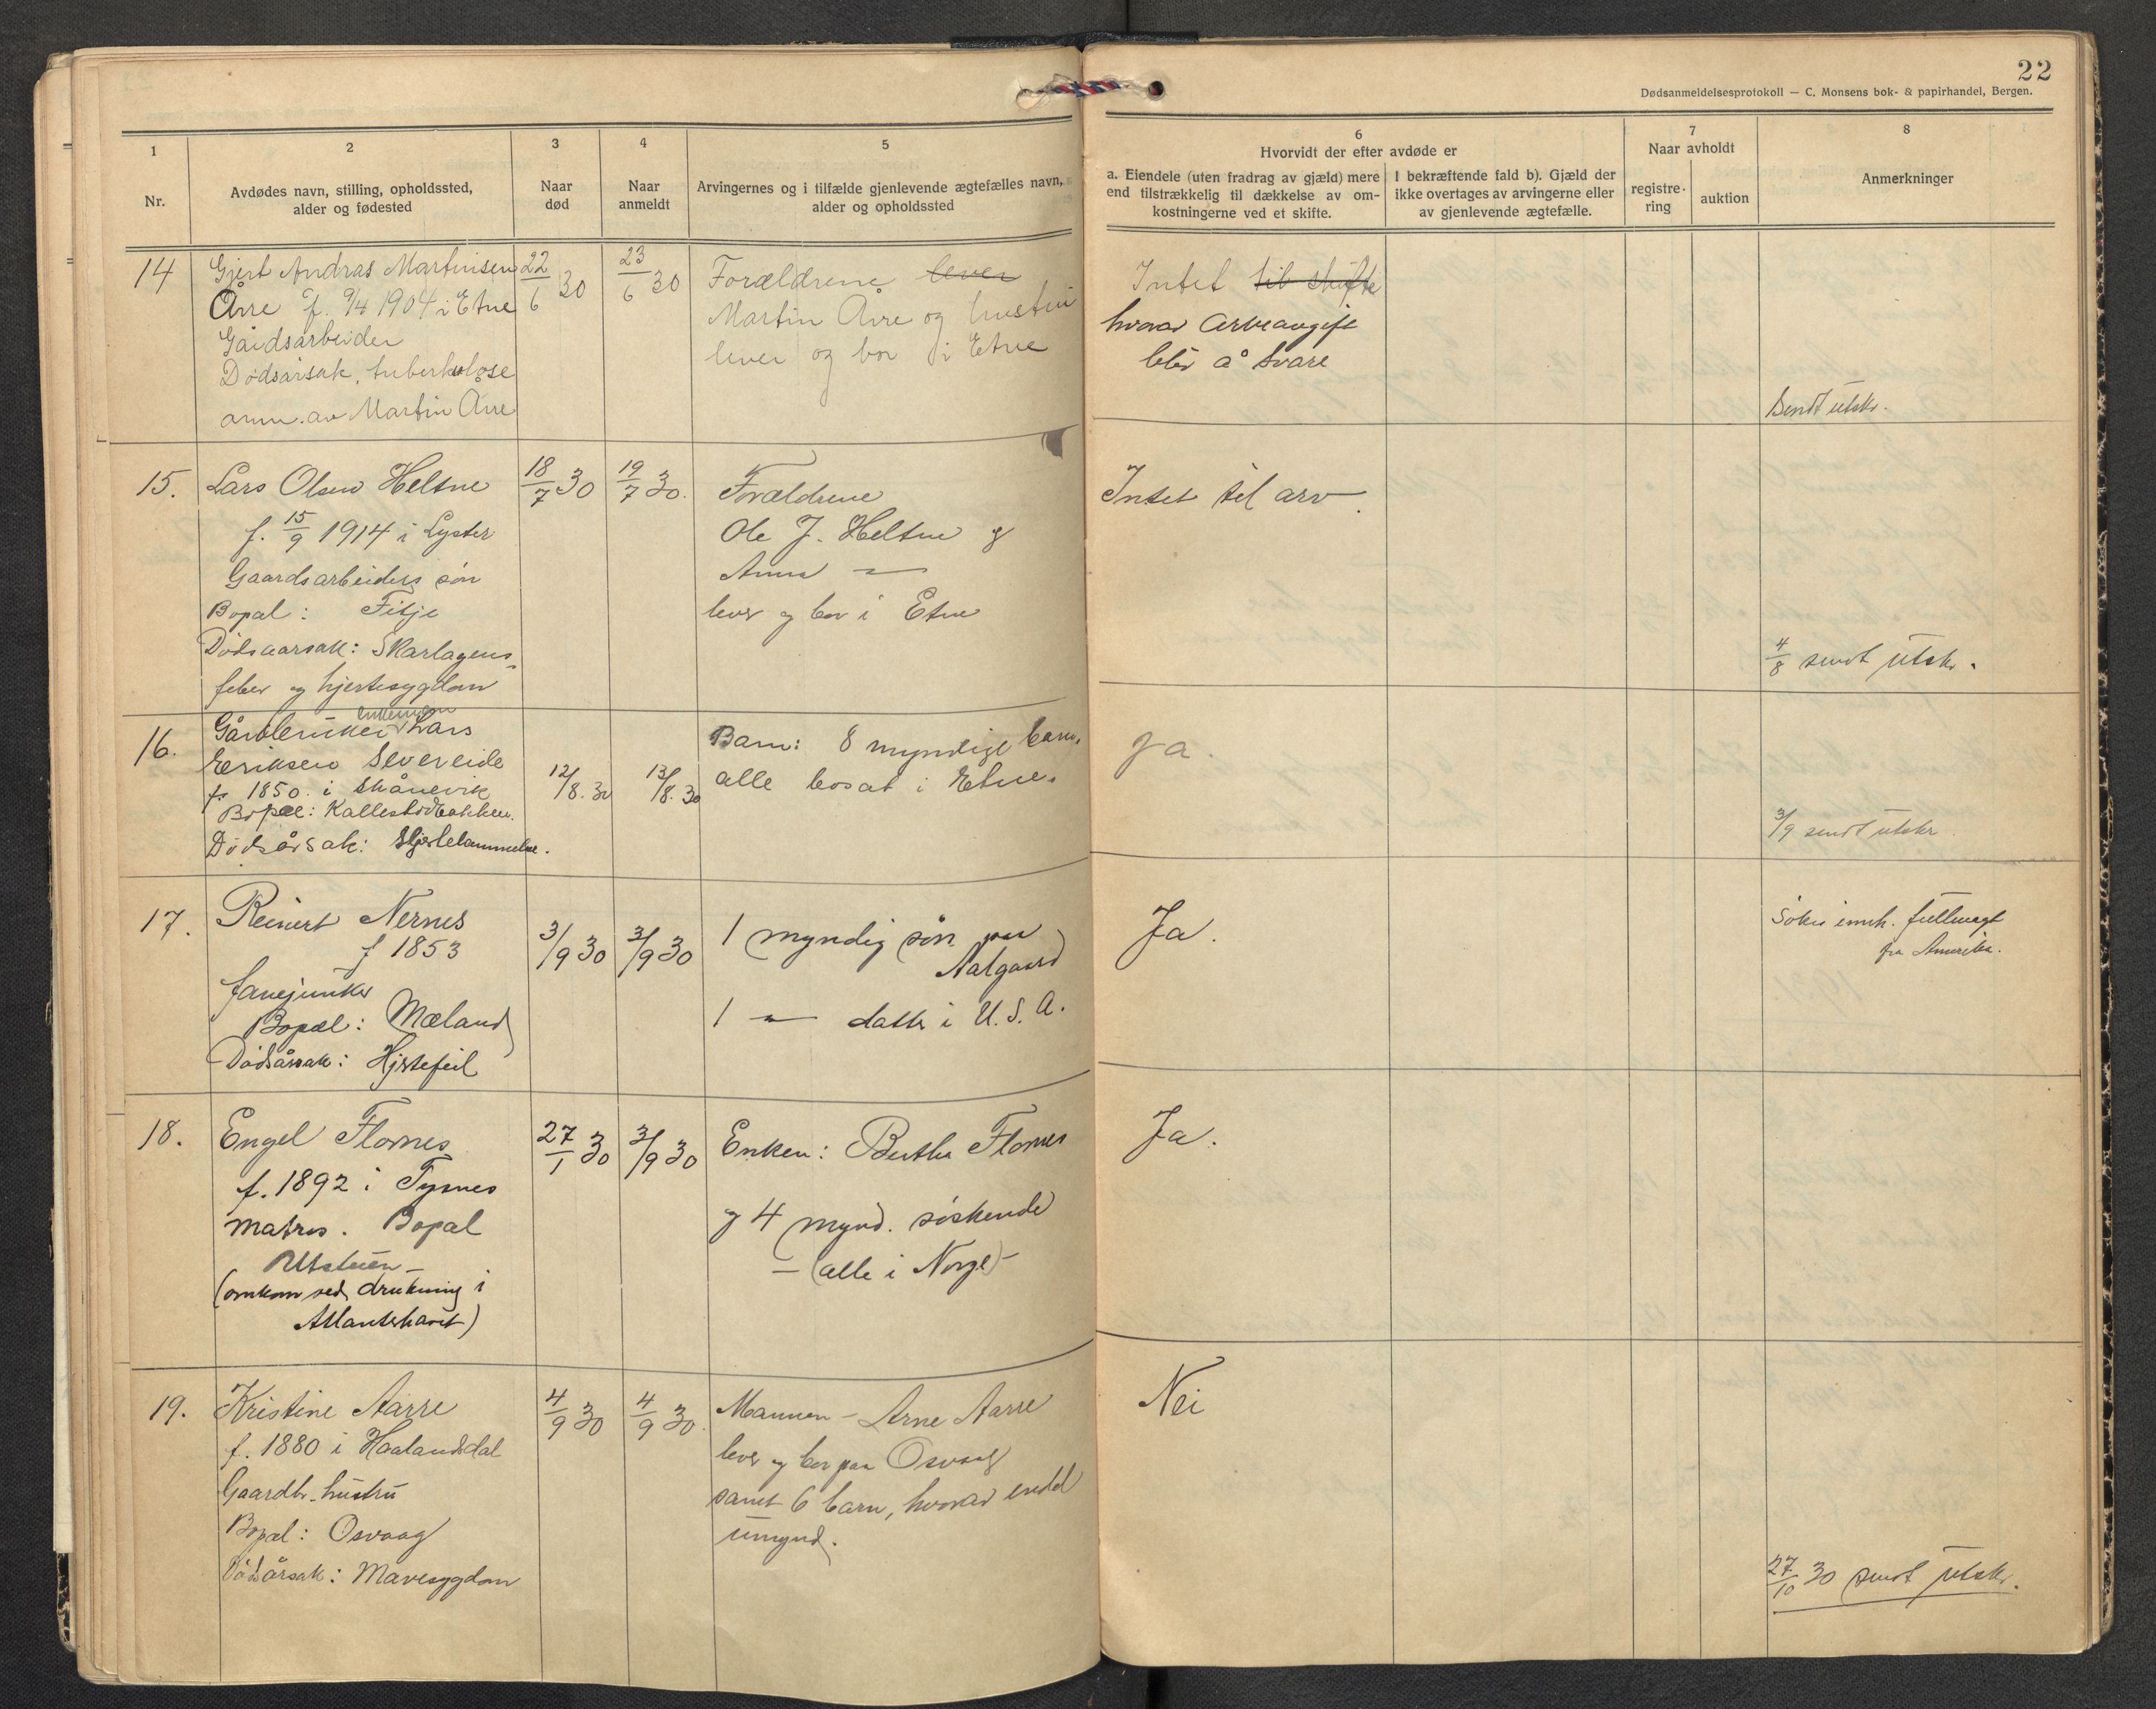 22
Dødsanmeldelsesprotokoll — C. Monsens bok- & papirhandel, Bergen.
1
Nr.
2
Avdødes navn, stilling, opholdssted,
alder og fødested
3
Naar
død
4
Naar
anmeldt
5
Arvingernes og i tilfælde gjenlevende ægtefælles navn,
alder og opholdssted
6
Hvorvidt der efter avdøde er
a. Eiendele (uten fradrag av gjæld) mere
end tilstrækkelig til dækkelse av om-
kostningerne ved et skifte.
I bekræftende fald b). Gjæld der
ikke overtages av arvingerne eller
av gjenlevende ægtefælle.
7
Naar avholdt
registre-
ring
auktion
8
Anmerkninger
14
Gjert Andras Martinisen
Årre f. 9/4 1904 i Etne
Gårdsarbeider
Dødsårsak. tuberkulose
anm. av Martin Årre
22/6 30
23/6 30
Forældrene lever
Martin Årre og hustru
lever og bor i Etne
Intet til skifte
hvorav Arveavgift
blir å svare
Sendt utskr.
15.
Lars Olsen Heltne
f. 15/9 1914 i Lyster
Gaardsarbeiders søn
Bopal: Fitje
Dødsaarsak: Skarlagens-
feber og hjertesygdom
18/7 30
19/7 30.
Forældrene
Ole J. Heltne og
Anna —"—
lever og bor i Etne
Intet til arv.
4/8 sendt utskr.
16.
Gårdbruker enkemann Lars
Eriksen Severeide
f. 1850. i Skånevik
Bopæl: Kallestadbakken.
Dødsårsak: Hjertelammelse.
12/8. 30
13/8. 30
Barn: 8 myndige barn,
alle bosat i Etne.
Ja.
3/9 sendt utskr.
17.
Reinert Nernes
f 1853
fanejunker
Bopæl: Mæland
Dødsårsak: Hjertefeil
3/9 30
3/9 30
1 myndig søn paa
Aalgaard
1 —"— datter i U.S.A.
Ja.
Søkes innh. fullmagt
fra Amerika.
18.
Engel Flornes
f. 1892 i Tysnes
matros. Bopal
Utstuen —
(omkom ved drukning i
Atlanterhavet)
27/1 30
3/9 30
Enken: Bertha Flornes
og 4 mynd. søskende
— (alle i Norge) —
Ja.
19.
Kristine Aarre
f. 1880 i Haalandsdal
Gaardbr. hustru
Bopæl: Osvaag
Dødsårsak: Mavesygdom
4/9 30
4/9 30.
Mannen — Arne Aarre
lever og bor paa Osvaag
samt 6 barn, hvorav endel
umynd.
Nei
27/10 30 sendt utskr.